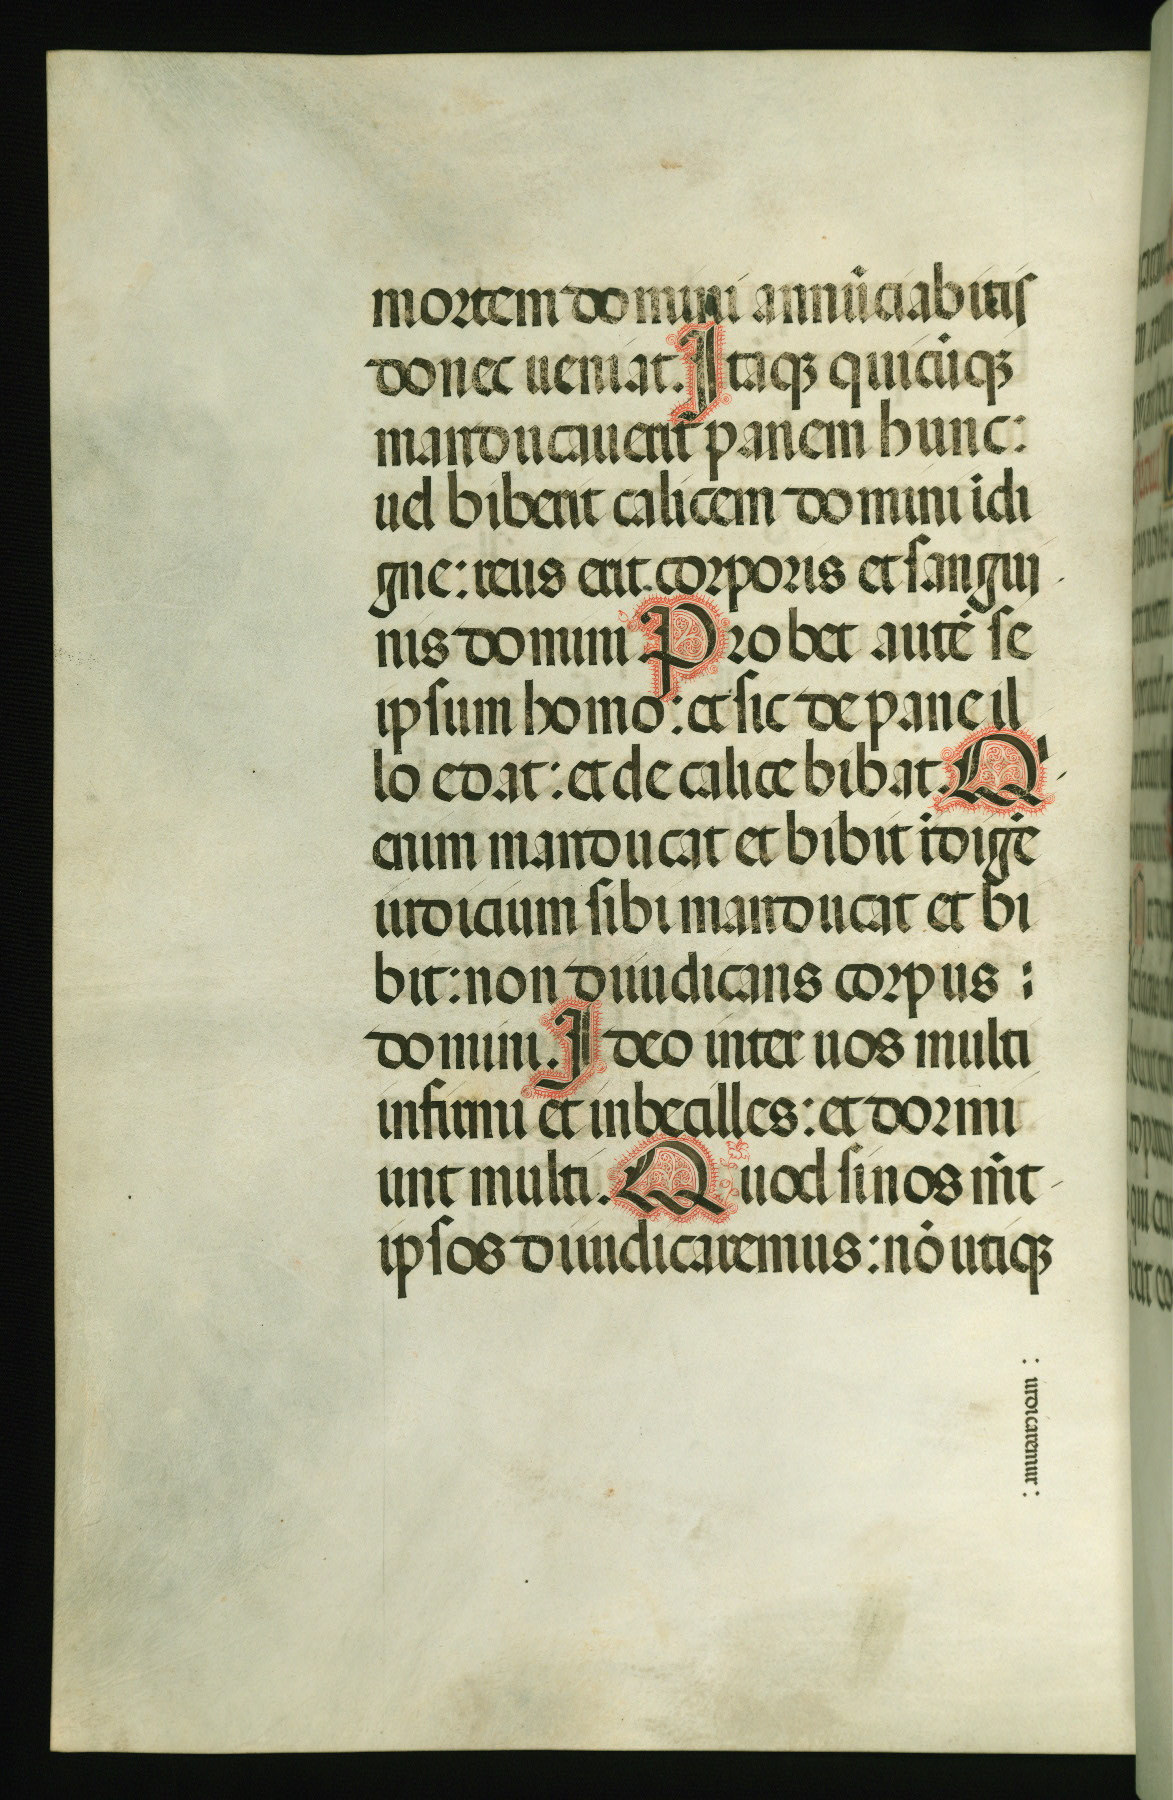 mortem domini annūciabitis
donec ueniat. Itaqꝫ quicūqꝫ
manducauerit panem hunc:
uel biberit calicem domini īdi
gne: reus erit corporis et sangui
nis domini. Probet autē se
ipsum homo: et sic de pane il
lo edat: et de calice bibat. Qⁱ
enim manducat et bibit īdigē
iudicium sibi manducat et bi
bit: non diiudicans corpus :
domini. Ideo inter uos multi
infirmi et inbecilles: et dormi
unt multi. Quod si nos m̄t
ipsos diiudicaremus: nō utiqꝫ
: iudicaremur :